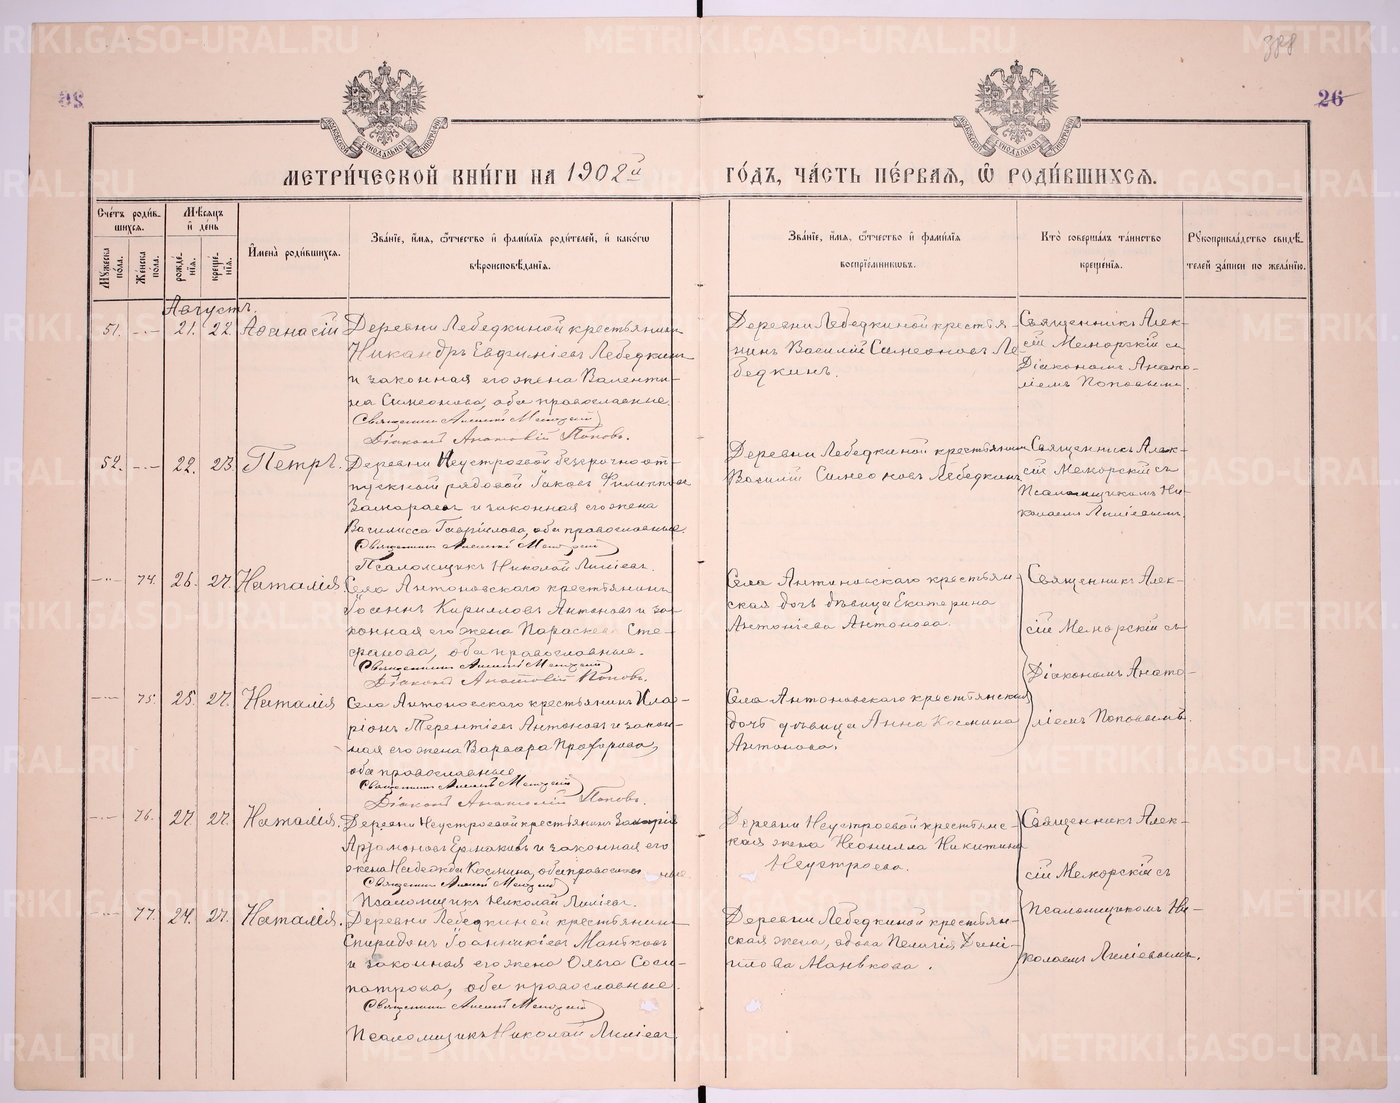 26
МЕТРИ́ЧЕСКОЙ КНИ́ГИ НА 1902й ГО́ДЪ, ЧА́СТЬ ПЕ́РВАѦ, Ѿ РОДИ́ВШИХСѦ.
Сче́тъ роди́в-
шихся.
Мꙋжеска по́ла.
Же́нска по́ла.
Мѣ́сяцъ
и҆ де́нь
рожде́-
нїя.
креще́-
нїя.
И҆мена̀ роди́вшихся.
Зва́нїе, и҆́мя, ѻ҆́тчество и҆ фами́лїя роди́телей, и҆ како́гѡ
вѣроисповѣ́данїя.
Зва́нїе, и҆́мя, ѻ҆́тчество и҆ фами́лїя
воспрїе́мниковъ.
Кто̀ соверша́лъ та́инство
креще́нїя.
Рꙋкоприкла́дство свидѣ́-
телей за́писи по жела́нїю.
Августъ.
51. 21. 22. Аѳанасій
Деревни Лебедкиной крестьянинъ
Никандръ Евфиміевъ Лебедкинъ
и законная его жена Валенти-
на Симеонова, оба православные.
Священникъ Алексій Меморскій
Діаконъ Анатолій Поповъ.
Деревни Лебедкиной крестья-
нинъ Василій Симеоновъ Ле-
бедкинъ.
Священникъ Алек-
сій Меморскій съ
Діакономъ Анато-
ліемъ Поповымъ.
52. 22. 23 Петръ.
Деревни Неустроевой безсрочно от-
пускной рядовой Іаковъ Филипповъ
Замараевъ и законная его жена
Василисса Гавріилова, оба православные.
Священникъ Алексій Меморскій
Псаломщикъ Николай Лиліевъ.
Деревни Лебедкиной крестьянинъ
Василій Симеоновъ Лебедкинъ
Священникъ Алек-
сій Меморскій съ
Псаломщикомъ Ни-
колаемъ Лиліевымъ.
74. 26. 27. Наталія.
Села Антоновскаго крестьянинъ
Іоаннъ Кирилловъ Антоновъ и за-
конная его жена Параскева Сте-
фанова, оба православные.
Священникъ Алексій Меморскій
Діаконъ Анатолій Поповъ.
Села Антоновскаго крестьян
ская дочь дѣвица Екатерина
Антоніева Антонова.
Священникъ Алек-
сій Меморскій съ
Діакономъ Анато-
ліемъ Поповымъ.
75. 25. 27. Наталія
Села Антоновскаго крестьянинъ Ила-
ріонъ Терентіевъ Антоновъ и закон-
ная его жена Варвара Прохорова,
оба православные
Священникъ Алексій Меморскій
Діаконъ Анатолій Поповъ.
Села Антоновскаго крестьянская
дочь дѣвица Анна Космина
Антонова.
76. 27. 27. Наталія.
Деревни Неустроевой крестьянинъ Захарія
Артамоновъ Ермаковъ и законная его
жена Надежда Космина, оба православные.
Священникъ Алексій Меморскій
Псаломщикъ Николай Лиліевъ.
Деревни Неустроевой крестьянс-
кая жена Неонилла Никитина
Неустроева.
Священникъ Алек-
сій Меморскій съ
Псаломщикомъ Ни-
колаемъ Лиліевымъ.
77. 24. 27. Наталія.
Деревни Лебедкиной крестьянинъ
Спиридонъ Іоанникіевъ Маньковъ
и законная его жена Ольга Соси-
патрова, оба православные.
Священникъ Алексій Меморскій
Псаломщикъ Николай Лиліевъ
Деревни Лебедкиной крестьян-
ская жена, вдова Пелагія Дані-
илова Манькова.
METRIKI.GASO-URAL.RU